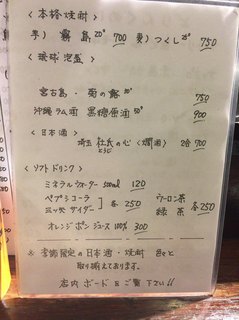 〈本格焼酎〉
芋) 霧島 20° 700 麦) つくし 25° 750
〈琉球泡盛〉
宮古島・菊の露 30° 750
沖縄ラム酒 黒糖原酒 40° 900
〈日本酒〉
埼玉 杜氏の心 (燗酒) 2合 700
とうじ
〈ソフトドリンク〉
ミネラルウォーター 500ml 120
ペプシコーラ
ミツヤサイダー ] 各 250
ウーロン茶
緑茶 各 250
オレンジポンジュース 100% 300
※ 季節限定の日本酒・焼酎 色々と
取り揃えております。
店内ボードをご覧下さい!!